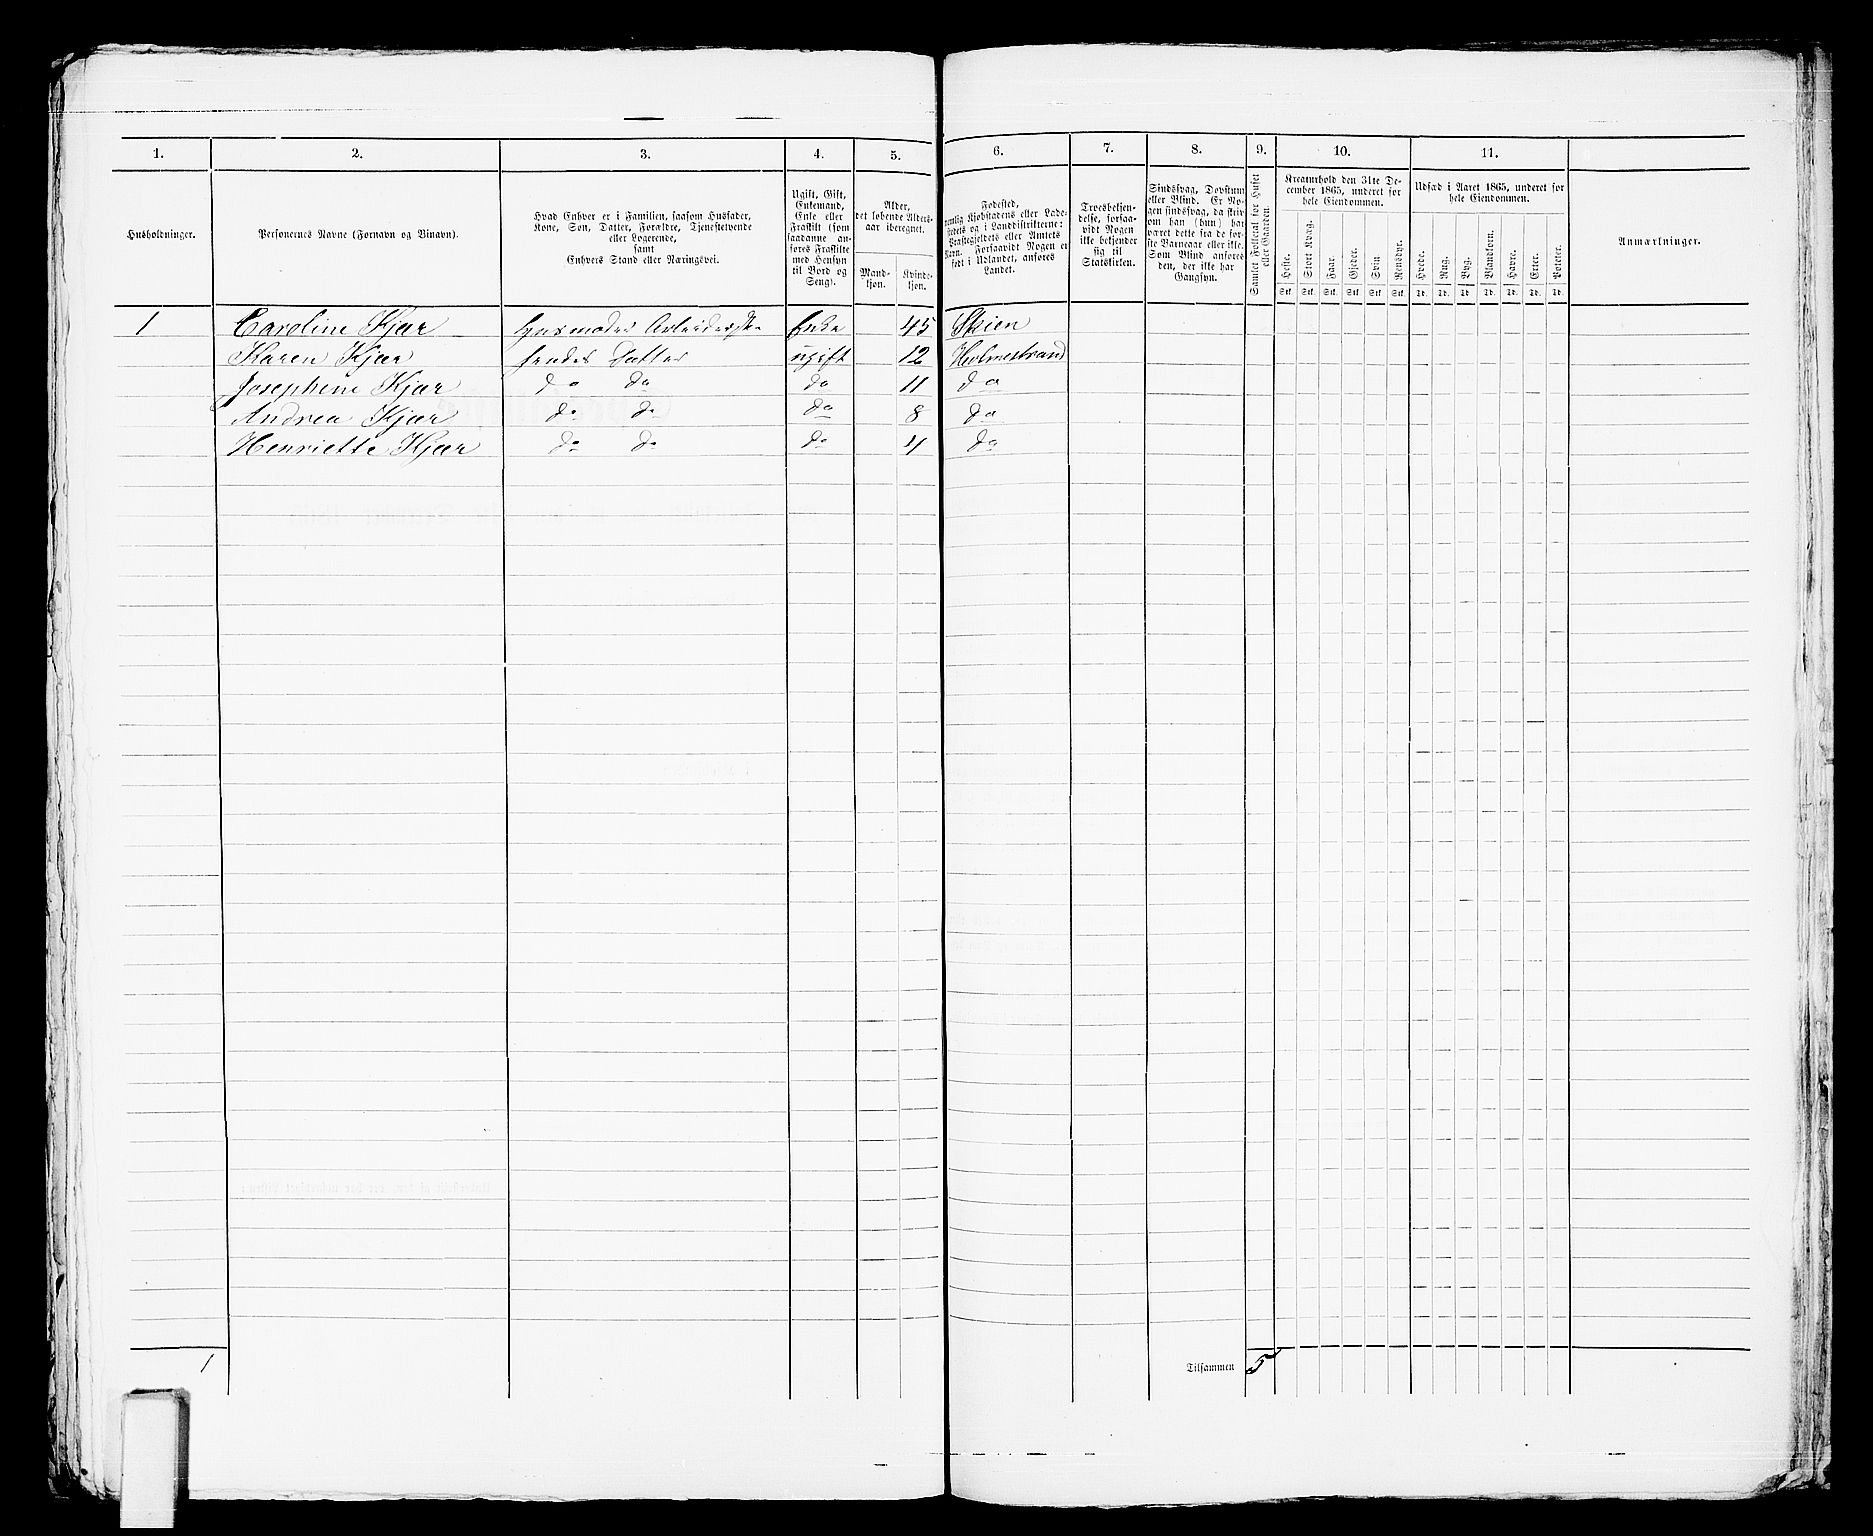 1. 2. 3. 4. 5. 6. 7. 8. 9. 10. 11.
Husholdninger.
Personernes Navne (Fornavn og Binavn).
Hvad Enhver er i Familien, saasom Husfader,
Kone, Søn, Datter, Forældre, Tjenestetyende
eller Logerende,
samt
Enhvers Stand eller Næringsvei.
Ugift, Gift,
Enkemand,
Enke eller
Fraskilt (som
saadanne an-
føres Fraskilte
med Hensyn
til Bord og
Seng).
Alder,
det løbende Alders-
aar iberegnet.
Mand-
kjøn.
Kvinde-
kjøn.
Fødested,
nemlig Kjøbstadens eller Lade-
stedets og i Landdistrikterne:
Præstegjeldets eller Annexets
Navn. Forsaavidt Nogen er
født i Udlandet, anføres
Landet.
Troesbekjen-
delse, forsaa-
vidt Nogen
ikke bekjender
sig til
Statskirken.
Sindssvag, Døvstum
eller Blind. Er No-
gen sindssvag, da skriv
om han (hun) har
været dette fra de før-
ste Barneaar eller ikke.
Som Blind anføres
den, der ikke har
Gangsyn.
Samlet Folketal for Huset
eller Gaarden.
Kreaturhold den 31te De-
cember 1865, underet for
hele Eiendommen.
Heste. Stort Kvæg. Faar. Gjeder. Svin Rensdyr.
Stk. Stk. Stk. Stk. Stk. Stk.
Udsæd i Aaret 1865, underet for
hele Eiendommen.
Hvede. Rug. Byg. Blandkorn. Havre. Erter. Poteter.
Td. Td. Td. Td. Td. Td. Td.
Anmærkninger.
1 Caroline Kjær Husmoder Arbeiderske Enke 45 Skien
Karen Kjær hendes Datter ugift 12 Holmestrand
Josephine Kjær do do do 11 do
Andrea Kjær do do do 8 do
Henriette Kjær do do do 4 do
1 Tilsammen 5